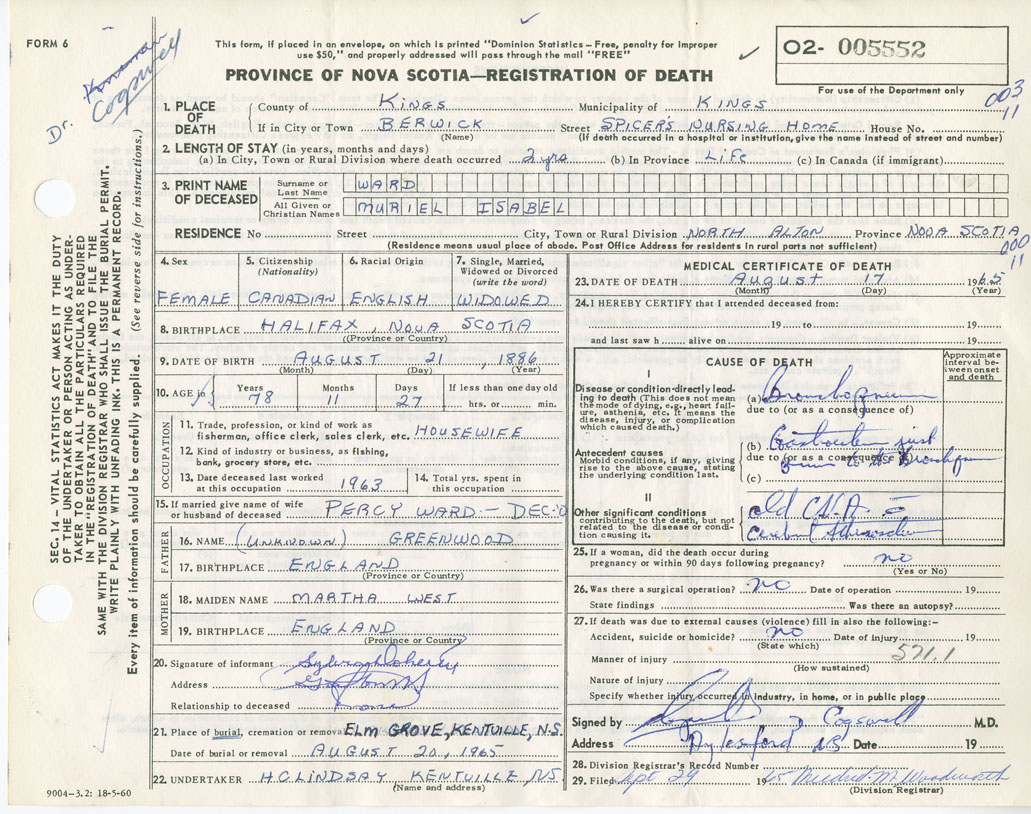 FORM 6
Dr. Cogswell
This form, if placed in an envelope, on which is printed "Dominion Statistics – Free, penalty for improper
use $50," and properly addressed will pass through the mail "FREE"
O2- 005552
PROVINCE OF NOVA SCOTIA—REGISTRATION OF DEATH
For use of the Department only
003
11
1. PLACE OF DEATH
County of KINGS Municipality of KINGS
If in City or Town BERWICK Street SPICER'S NURSING HOME House No.
(Name) (If death occurred in a hospital or institution, give the name instead of street and number)
2. LENGTH OF STAY (in years, months and days)
(a) In City, Town or Rural Division where death occurred 2 yrs (b) In Province LIFE (c) In Canada (if immigrant)
3. PRINT NAME OF DECEASED
Surname or Last Name WARD
All Given or Christian Names MURIEL ISABEL
RESIDENCE No Street City, Town or Rural Division NORTH ALTON Province NOVA SCOTIA
(Residence means usual place of abode. Post Office Address for residents in rural parts not sufficient)
000
11
4. Sex FEMALE
5. Citizenship (Nationality) CANADIAN
6. Racial Origin ENGLISH
7. Single, Married, Widowed or Divorced (write the word) WIDOWED
8. BIRTHPLACE HALIFAX, NOVA SCOTIA
(Province or Country)
9. DATE OF BIRTH AUGUST 21, 1886
(Month) (Day) (Year)
10. AGE Years 78 Months 11 Days 27 If less than one day old hrs. or min.
OCCUPATION
11. Trade, profession or kind of work as fisherman, office clerk, sales clerk, etc. HOUSEWIFE
12. Kind of industry or business, as fishing, bank, grocery store, etc.
13. Date deceased last worked at this occupation 1963
14. Total yrs. spent in this occupation
15. If married give name of wife or husband of deceased PERCY WARD – DEC'D
FATHER
16. NAME (UNKNOWN) GREENWOOD
17. BIRTHPLACE ENGLAND
(Province or Country)
MOTHER
18. MAIDEN NAME MARTHA WEST
19. BIRTHPLACE ENGLAND
(Province or Country)
20. Signature of informant
Address
Relationship to deceased
21. Place of burial, cremation or removal ELM GROVE, KENTVILLE, N.S.
Date of burial or removal AUGUST 20, 1965
22. UNDERTAKER H.C. LINDSAY KENTVILLE, NS
(Name and address)
MEDICAL CERTIFICATE OF DEATH
23. DATE OF DEATH August 17 1965
(Month) (Day) (Year)
24. I HEREBY CERTIFY that I attended deceased from:
19 to 19
and last saw h alive on 19
CAUSE OF DEATH
Approximate interval between onset and death
I
Disease or condition directly leading to death (This does not mean the mode of dying, e.g., heart failure, asthenia, etc. It means the disease, injury, or complication which caused death.)
(a)
due to (or as a consequence of)
Antecedent causes
Morbid conditions, if any, giving rise to the above cause, stating the underlying condition last.
(b)
due to (or as a consequence of)
(c)
II
Other significant conditions contributing to the death, but not related to the disease or condition causing it.
old C.V.A.
25. If a woman, did the death occur during pregnancy or within 90 days following pregnancy? no
(Yes or No)
26. Was there a surgical operation? no Date of operation 19
State findings Was there an autopsy?
27. If death was due to external causes (violence) fill in also the following:–
Accident, suicide or homicide? no Date of injury 19
(State which)
571.1
Manner of injury
(How sustained)
Nature of injury
Specify whether injury occurred in industry, in home, or in public place
Signed by Cogswell M.D.
Address Aylesford NS Date 19
28. Division Registrar's Record Number
29. Filed Sept 29 1965 Mildred M. Woodworth
(Division Registrar)
SEC. 14 – VITAL STATISTICS ACT MAKES IT THE DUTY
OF THE UNDERTAKER OR PERSON ACTING AS UNDER-
TAKER TO OBTAIN ALL THE PARTICULARS REQUIRED
IN THE "REGISTRATION OF DEATH" AND TO FILE THE
SAME WITH THE DIVISION REGISTRAR WHO SHALL ISSUE THE BURIAL PERMIT.
WRITE PLAINLY WITH UNFADING INK. THIS IS A PERMANENT RECORD.
Every item of information should be carefully supplied. (See reverse side for instructions.)
9004–3.2: 18-5-60